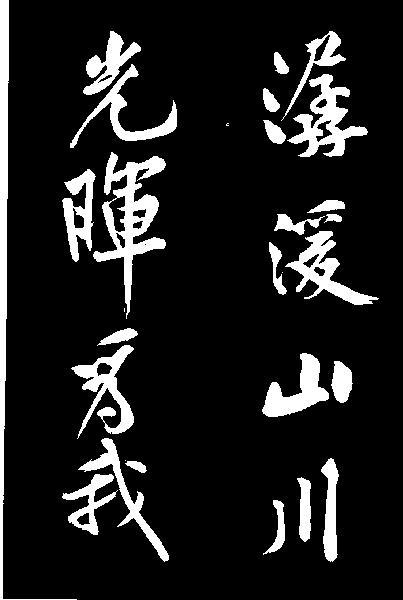 潺湲山川
光暉爲我